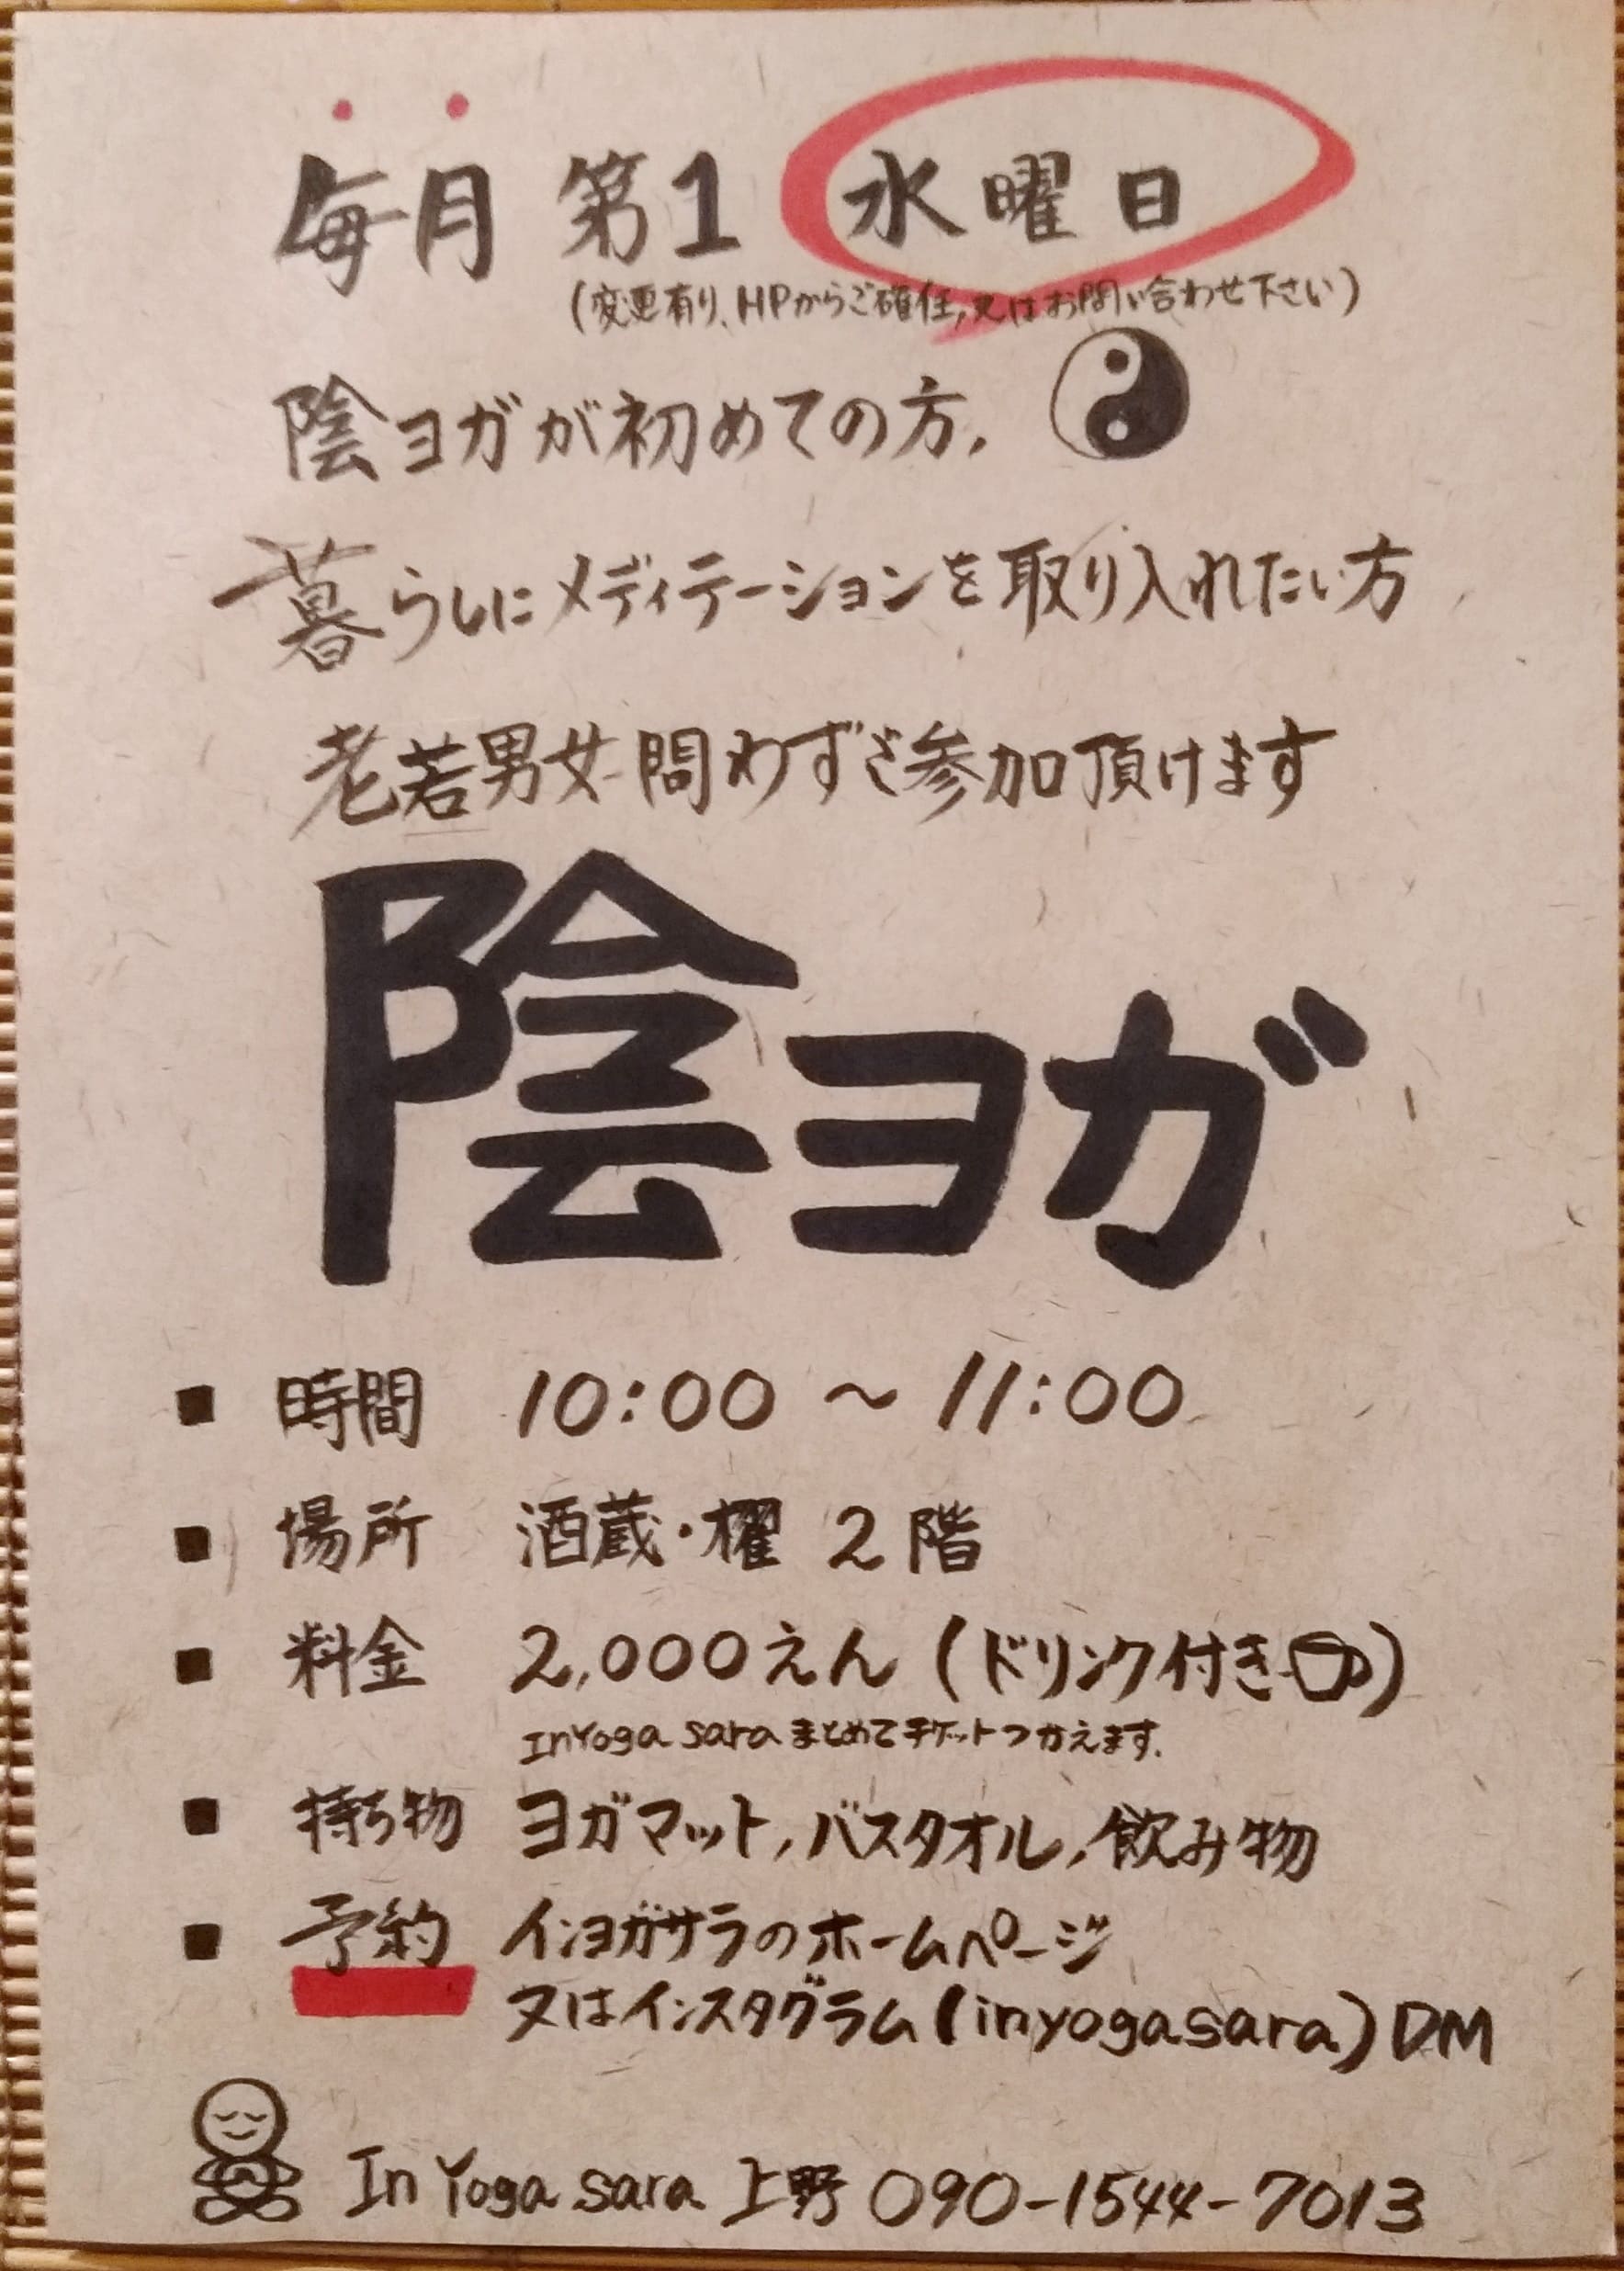 毎月 第1 水曜日
(変更有り、HPからご確任,又はお問い合わせ下さい)
陰ヨガが初めての方,
暮らしにメディテーションを取り入れたい方
老若男女問わずご参加頂けます
陰ヨガ
■ 時間 10:00 ～ 11:00
■ 場所 酒蔵・櫂 2階
■ 料金 2,000えん (ドリンク付き)
InYoga sara まとめてチケットつかえます.
■ 持ち物 ヨガマット,バスタオル,飲み物
■ 予約 インヨガサラのホームページ
又はインスタグラム(inyogasara)DM
In Yoga sara 上野 090-1544-7013